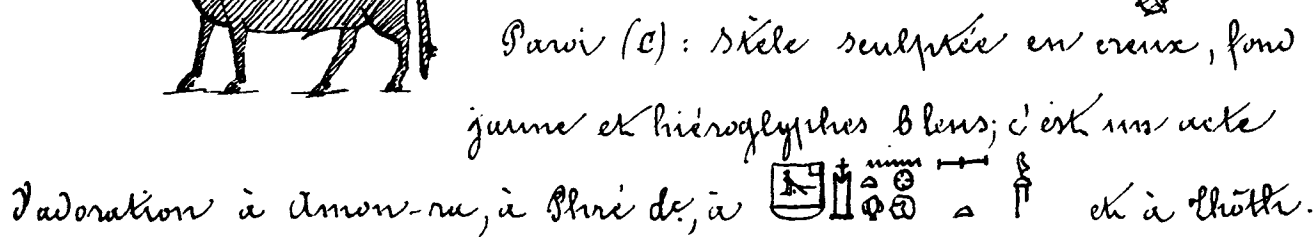 Paroi (C) : Stèle sculptée en creux, fond
jaune et hiéroglyphes bleus; c'est un acte
d'adoration à Amon-ra, à Phré &c, à et à Thôth.